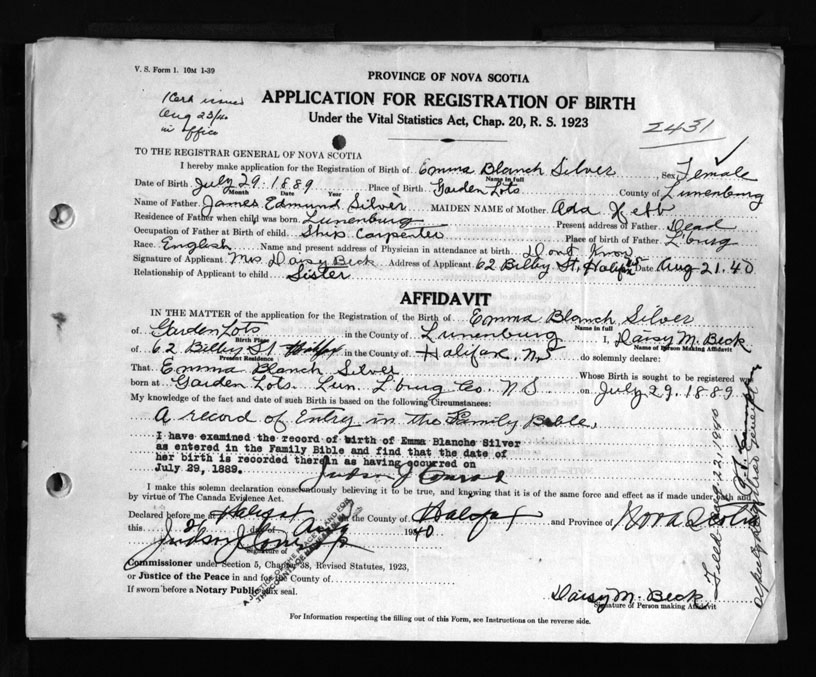 V. S. Form 1. 10M 1-39
PROVINCE OF NOVA SCOTIA
1 Cert issued
Aug 23/40
in office
APPLICATION FOR REGISTRATION OF BIRTH
Under the Vital Statistics Act, Chap. 20, R. S. 1923
2431
TO THE REGISTRAR GENERAL OF NOVA SCOTIA
I hereby make application for the Registration of Birth of Emma Blanch Silver Sex Female
Name in full
Date of Birth July 29. 1889 Place of Birth Garden Lots County of Lunenburg
Month Date Year
Name of Father James Edmund Silver MAIDEN NAME of Mother Ada
Residence of Father when child was born Lunenburg Present address of Father Dead
Occupation of Father at Birth of child Ship Carpenter Place of birth of Father L'burg
Race English Name and present address of Physician in attendance at birth Dont Know
Signature of Applicant Mrs Daisy Beck Address of Applicant 62 Bilby St, Halifax NS Date Aug 21. 40
Relationship of Applicant to child Sister
AFFIDAVIT
IN THE MATTER of the application for the Registration of the Birth of Emma Blanch Silver
Name in full
of Garden Lots in the County of Lunenburg I, Daisy M. Beck
Birth Place Name of Person Making Affidavit
of 62 Bilby St Halifax in the County of Halifax, NS do solemnly declare:
Present Residence
That Emma Blanch Silver Whose Birth is sought to be registered was
born at Garden Lots. Lun. L'burg Co. N S on July 29. 1889
My knowledge of the fact and date of such Birth is based on the following Circumstances:
A record of Entry in the Family Bible,
I have examined the record of birth of Emma Blanche Silver
as entered in the Family Bible and find that the date of
her birth is recorded therein as having occurred on
July 29, 1889.
Judson J Conrad
I make this solemn declaration conscientiously believing it to be true, and knowing that it is of the same force and effect as if made under oath and
by virtue of The Canada Evidence Act.
Declared before me in Halifax in the County of Halifax and Province of Nova Scotia
this day of Aug 1940
Judson J Conrad JP
Signature of
A JUSTICE OF THE PEACE IN AND FOR
THE COUNTY OF
Commissioner under Section 5, Chapter 38, Revised Statutes, 1923,
or Justice of the Peace in and for the County of
If sworn before a Notary Public affix seal.
Daisy M. Beck
Signature of Person making Affidavit
Filed Aug 22, 1940
Deputy Registrar General
For Information respecting the filling out of this Form, see Instructions on the reverse side.